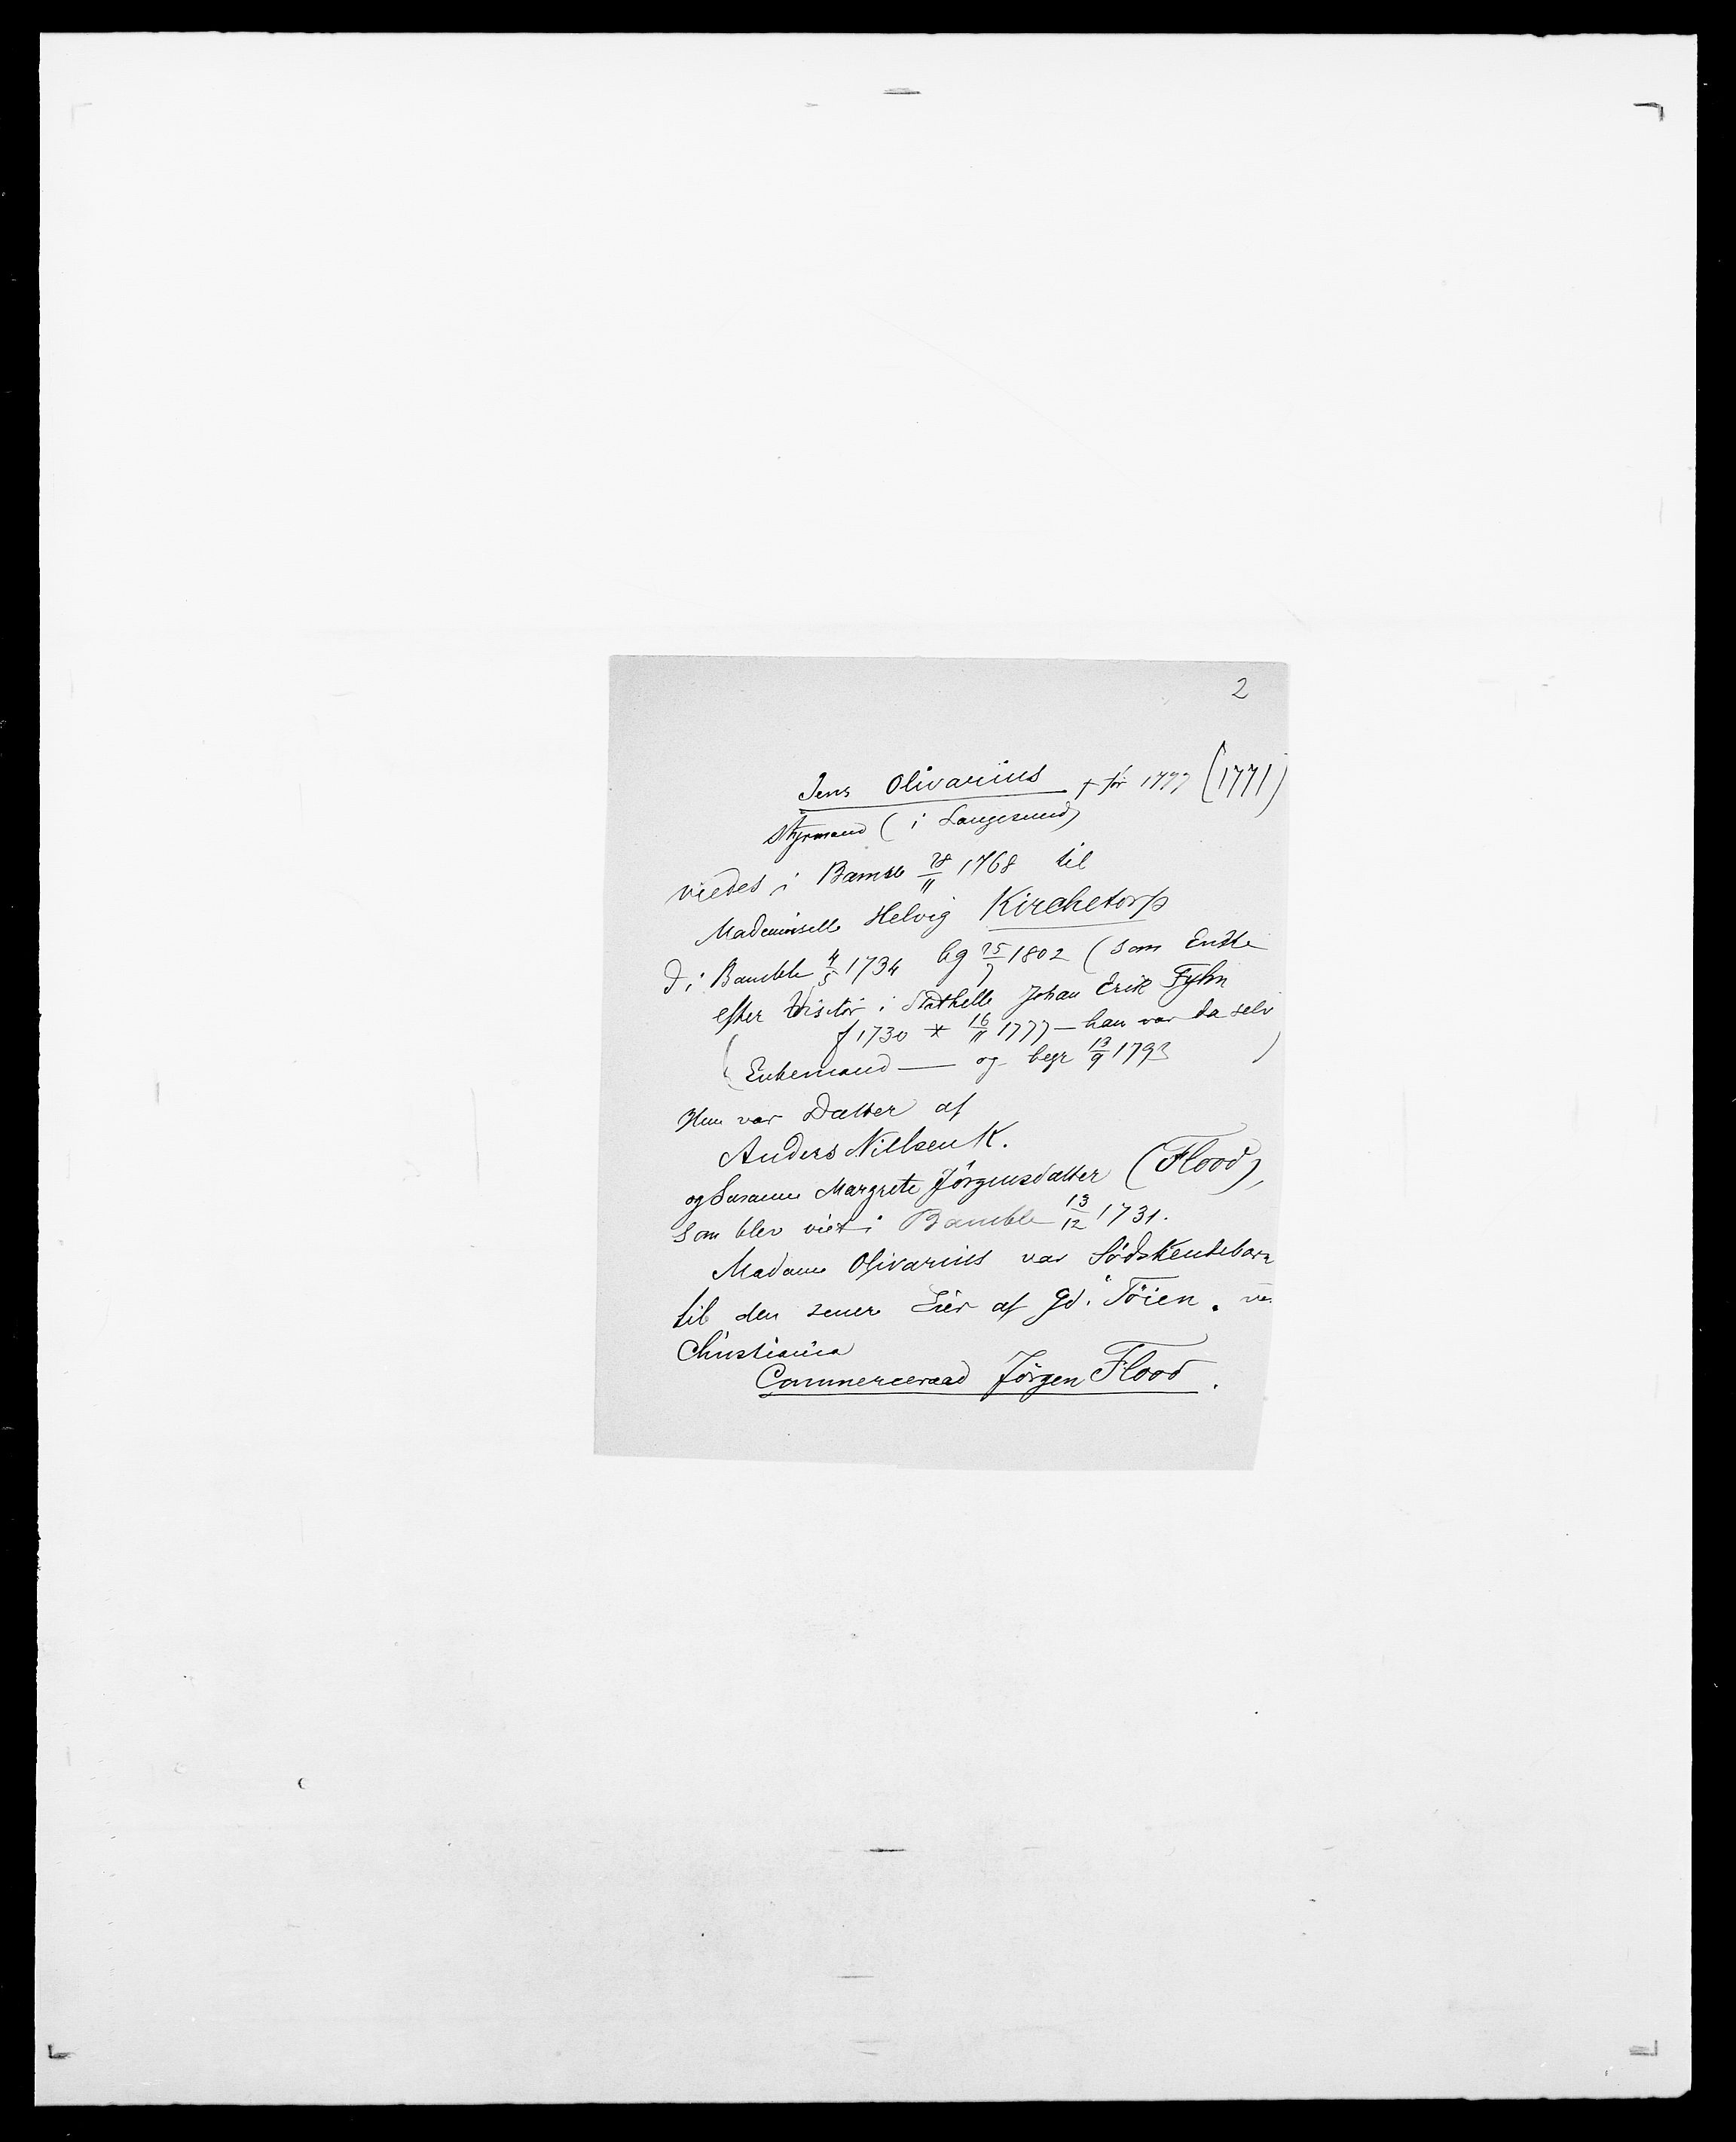 2
Jens Olivarius † før 1777 (1771)
Styrmand (i Langesund)
viedes i Bamble 28/11 1768 til
Mademoiselle Helvig Kirchetorp
d. i Bamble 4/5 1734 bg 25/7 1802 (som Enke
efter Visitør i Stathelle Johan Erik Fyhn
f 1730 * 16/11 1777 — han var da selv
(Enkemand — og begr 13/9 1793 )
Hun var Datter af
Anders Nillsen K.
og Susanne Margrete Jörgensdatter (Flood),
som blev viet i Bamble 13/12 1731.
Madame Olivarius var Södskendebarn
til den senere Eier af Gd. Töien. ve.
Christiania
Commerceraad Jörgen Flood.